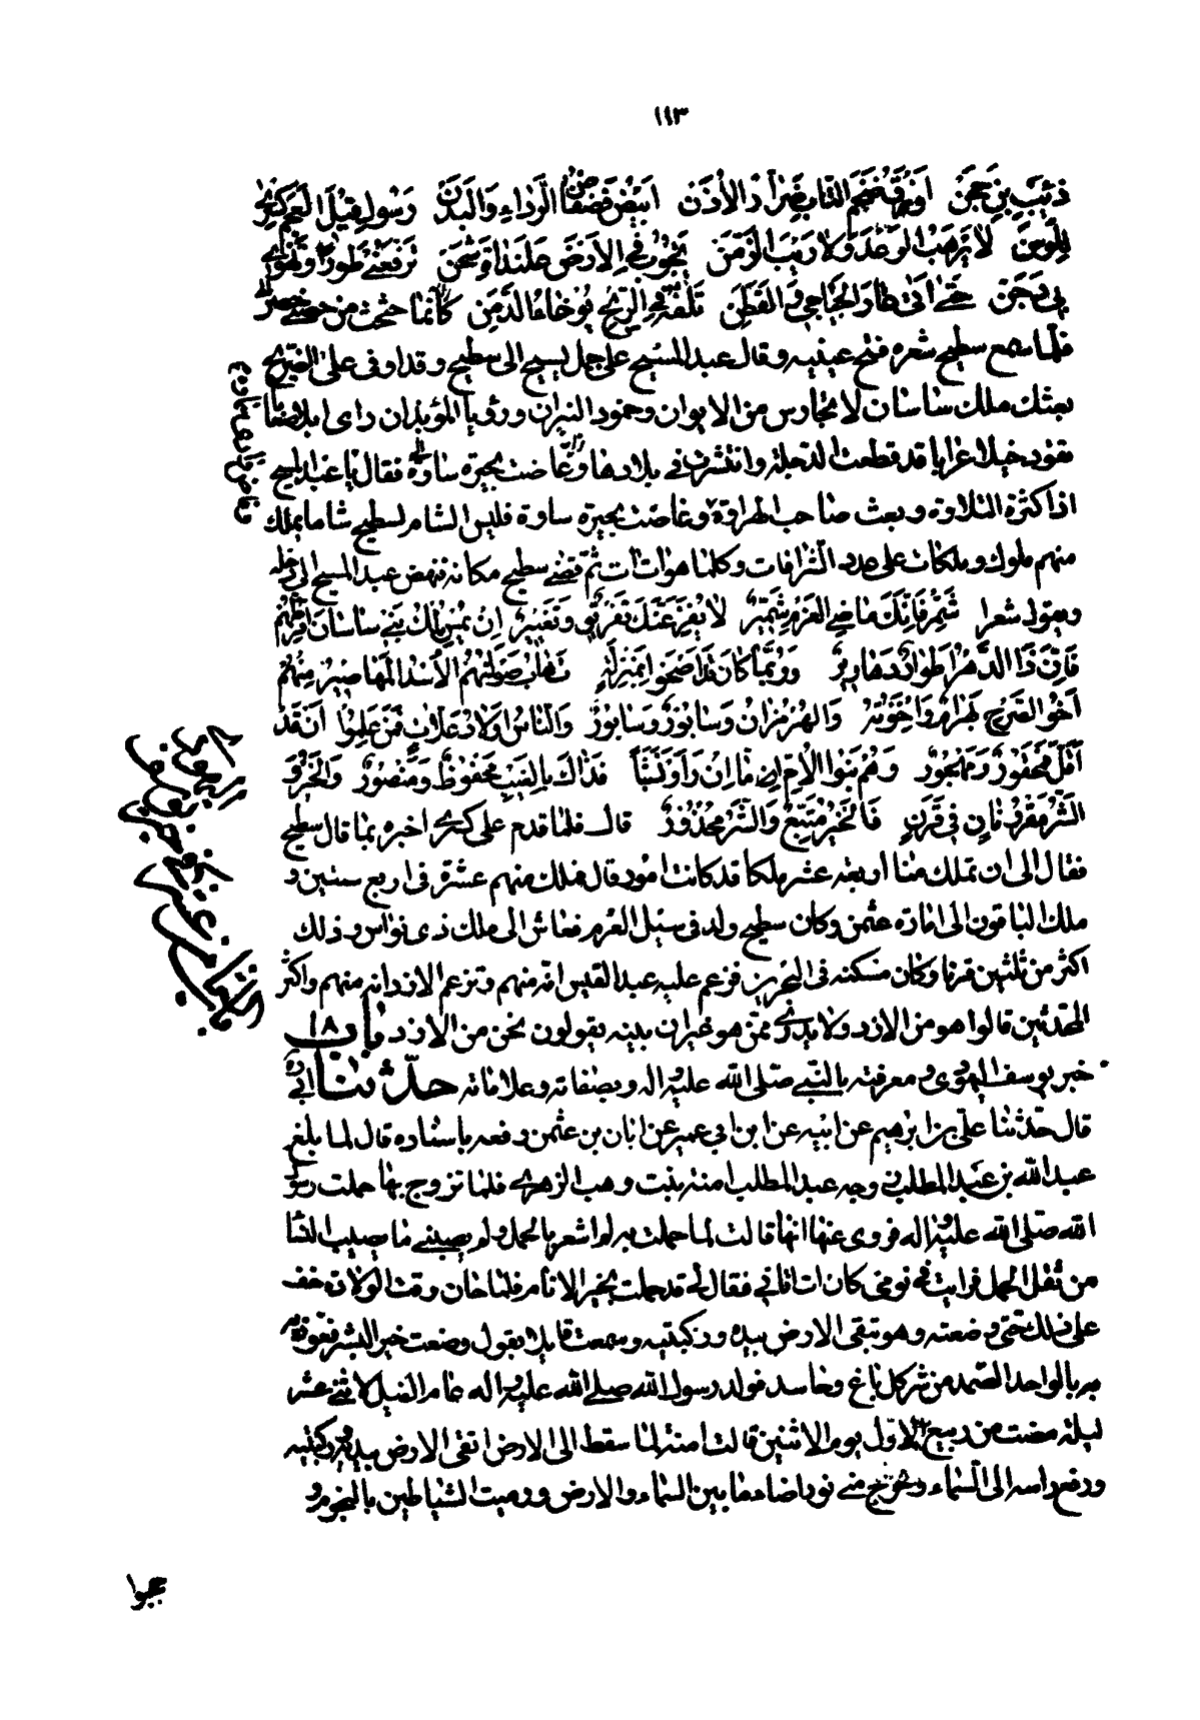 ١١٣
ذِئْبِ بنِ حَجَنْ اَزْرَقُ ضَخْمُ النّابِ صَرّارُ الأُذُنْ اَبْيَضُ فَضْفَاضُ الرِّداءِ وَالبَدَنْ رَسُولُ قَيْلِ العُجْمِ كِسْرى
لِلوَسَنْ لا يَرْهَبُ الرَّعْدَ وَلا رَيْبَ الزَّمَنْ يَجُوبُ فِي الاَرْضِ عَلَنْداةٌ شَجَنْ تَرْفَعُنِي طَوْرًا وَتَهْوِي
بِي دَجَنْ حَتّى اَتى عارِ الجَآجِي وَالقَطَنْ تَلُفُّهُ فِي الرِّيحِ بَوْغاءُ الدِّمَنْ كَأنَّما حثحث من حضني
فلما سمع سطيح شعره فتح عينيه وقال عبد المسيح على جمل يسيح الى سطيح وقد اوفى على الضريح
بعثك ملك ساسان لارتجاس الايوان وخمود النيران ورؤيا المؤبذان راى ابلا صعابا
تقود خيلا عرابا قد قطعت الدجلة وانتشرت في بلادها وغاضت بحيرة ساوة فقال يا عبد المسيح
اذا كثرت التلاوة وبعث صاحب الهراوة وغاضت بحيرة ساوة فليس الشام لسطيح شاما يملك
منهم ملوك وملكات على عدد الشرافات وكلما هو ات ات ثم قضى سطيح مكانه فنهض عبد المسيح الى رحله
ويقول شعرا شَمِّرْ فَإنَّكَ ماضِي العَزْمِ شِمِّيرُ لا يُفْزِعَنَّكَ تَفْرِيقٌ وَتَغْيِيرُ اِنْ يُمْسِ مُلْكُ بَنِي ساسانَ اَفْرَطَهُمْ
فَإنَّ ذَا الدَّهْرَ اَطْوارٌ دَهارِيرُ وَرُبَّما كانَ قَدْ اَضْحَوْا بِمَنْزِلَةٍ تَهابُ صَوْلَتَهُمُ الأُسْدُ المَهاصِيرُ مِنْهُمْ
اَخُو الصَّرْحِ بَهْرامُ وَاِخْوَتُهُ وَالهُرْمُزانُ وَسابُورٌ وَسابُورُ وَالنّاسُ اَوْلادُ عَلّاتٍ فَمَنْ عَلِمُوا اَنْ قَدْ
اَقَلَّ فَمَحْقُورٌ وَمَهْجُورُ وَهُمْ بَنُوا الأُمِّ اِنْ ما اِنْ رَأَوْا نَشَبًا فَذاكَ بِالغَيْبِ مَحْفُوظٌ وَمَنْصُورُ وَالخَيْرُ وَ
الشَّرُّ مَقْرُونانِ فِي قَرَنٍ فَالخَيْرُ مُتَّبَعٌ وَالشَّرُّ مَحْذُورُ قال فلما قدم على كسرى اخبره بما قال سطيح
فقال الى ان تملك منا اربعة عشر ملكا قد كانت امور قال فملك منهم عشرة في اربع سنين و
ملك الباقون الى امارة عثمن وكان سطيح ولد في سيل العرم فعاش الى ملك ذى نواس وذلك
اكثر من ثلثين قرنا وكان مسكنه في البحرين فزعم عليه عبد القيس انه منهم وتزعم الازد انه منهم واكثر
المحدثين قالوا هو من الازد ولا يدرى ممن هو غير ان بنيه يقولون نحن من الازد باب ١٨
خبر يوسف اليهودى ومعرفته بالنبي صلى الله عليه واله وبصفاته وعلاماته حدثنا ابي ره
قال حدثنا على بن ابرهيم عن ابيه عن ابن ابي عمير عن ابان بن عثمن رفعه باسناده قال لما بلغ
عبد الله بن عبد المطلب زوجه عبد المطلب امنة بنت وهب الزهرى فلما تزوج بها حملت برسول
الله صلى الله عليه واله فروى عنها انها قالت لما حملت به لم اشعر بالحمل ولم يصبني ما يصيب النسا
من ثقل الحمل فرايت في نومى كان ات اتاني فقال لي قد حملت بخير الانام فلما حان وقت الولادة خف
على ذلك حتى وضعته وهو يتقى الارض بيده وركبتيه وسمعت قايلا يقول وضعت خير البشر فعوذيه
بالواحد الصمد من شر كل باغ وحاسد فولد رسول الله صلى الله عليه واله عام الفيل لاثنتي عشر
ليلة مضت من ربيع الاول يوم الاثنين قالت امنة لما سقط الى الارض اتقى الارض بيديه وركبتيه
ورفع راسه الى السماء وخرج منى نور اضاء ما بين السماء والارض ورميت الشياطين بالنجوم و
حجبوا